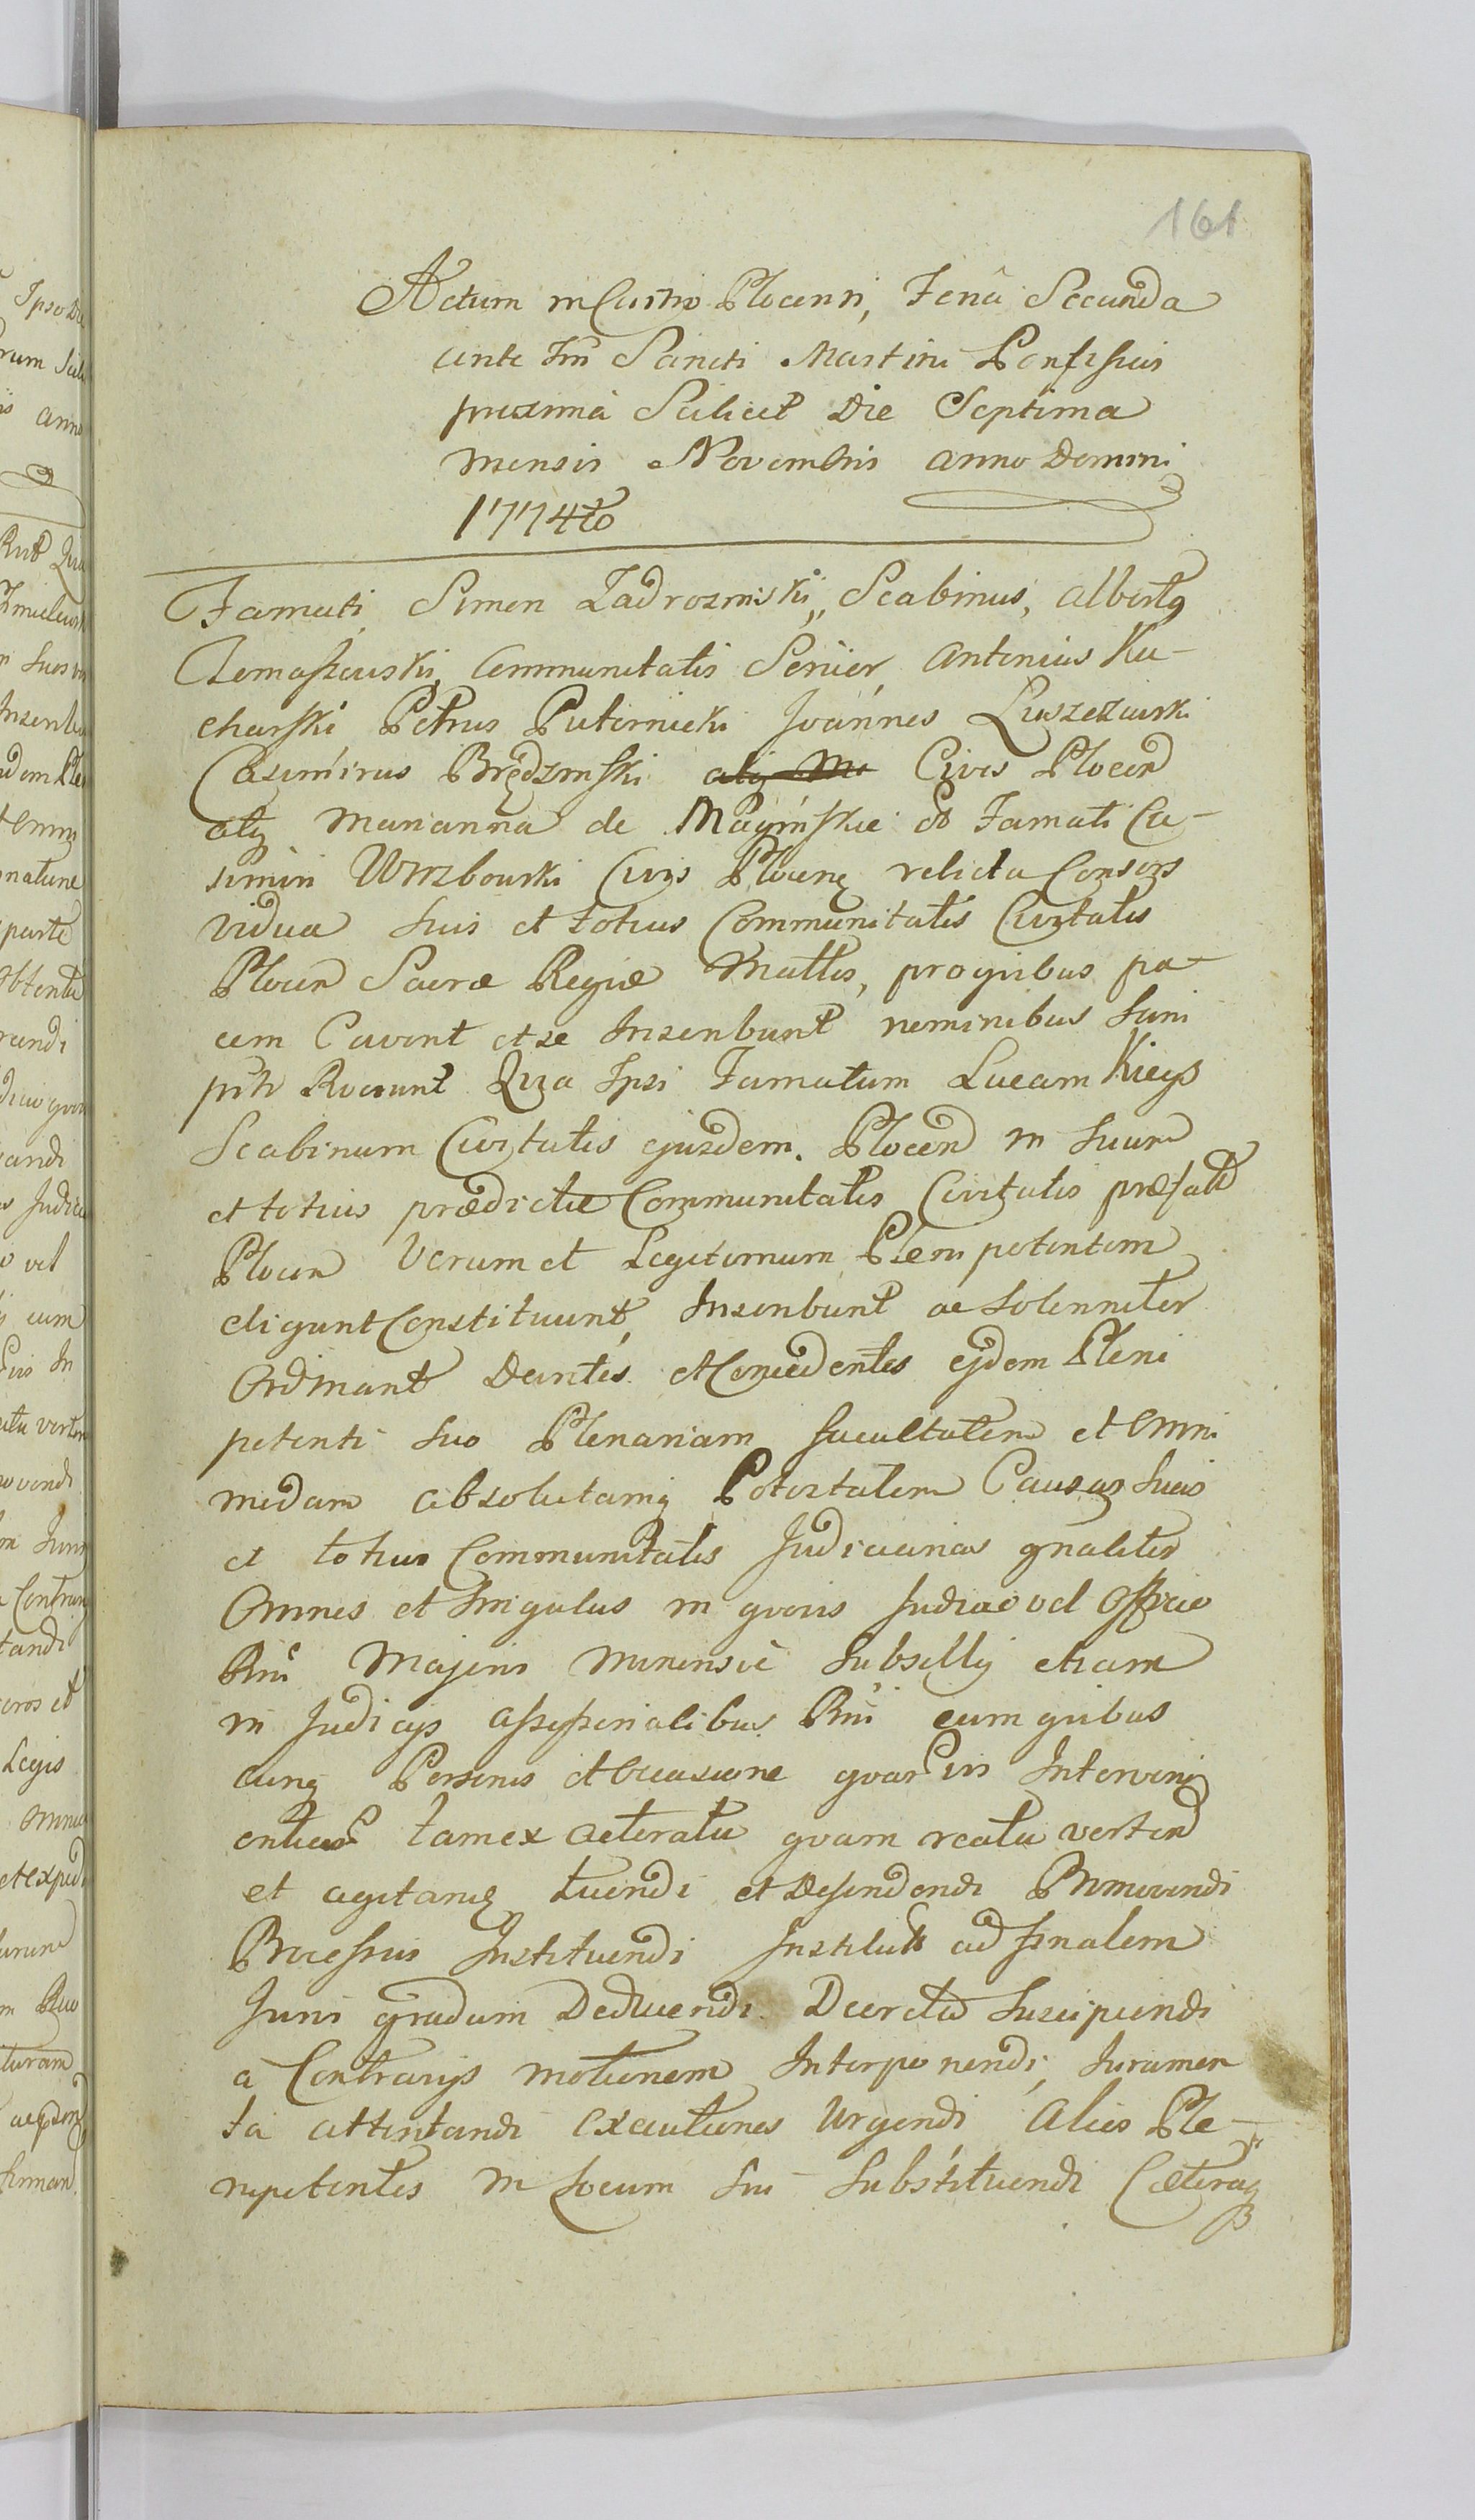 161
Actum in Castro Plocensi, Feria Secunda
ante Fm̄ Sancti Martini Confessoris
proximâ Scilicet Die Septima
mensis Novembris anno Domini
1774to
Famati Simon Zadrozniski, Scabinus, Albertq
Tomaszewski, Communitatis Senior, Antonius Ku-
charski Petrus Puternicki Joannes Luszczewski
Casimirus Brędzinski Cives Plocen
atq Marianna de Magińskie et Famati Ca-
simiri Wirzbowski Civis Plocenq relicta Consors
vidua suis et totius Communitatis Civitatis
Plocen Sacræ Regiæ Mattis, pro quibus pa-
cem Cavent et se Inscribunt nominibus suis
Quia Ipsi Famatum Lucam Kieys
Scabinum Civitatis ejusdem Plocen in suum
et totius prædictæ Communitatis Civitatis præfat
Plocen Verum et Legitimum Plenipotentem
eligunt Constituunt, Inscribunt ac solenniter
Ordinant Dantes et Concedentes ejdem Pleni
potenti suo Plenariam facultatem et Omni
modam absolutamq Potestatem Causas suas
et totius Communitatis Judiciarias gnaliter
Omnes et singulas in qvovis Judicio vel Officio
Rni Majoris Minorisve Subsellij etiam
in Judicijs assessorialibus Rni cum quibus
cunq Personis et Occasione qvar vis Interveni
entium tam ex actoratu qvam reatu verten
et agitanq tuendi et Defendendi Promovendi
Processus Instituendi Institut ad finalem
Juris gradum Deducendi Decreta Suscipiendi
a Contrarijs motionem Interponendi, Juramen
ta attentandi Executiones Urgendi Alios Ple-
nipotentes in Locum sui Substituendi Cæteraq